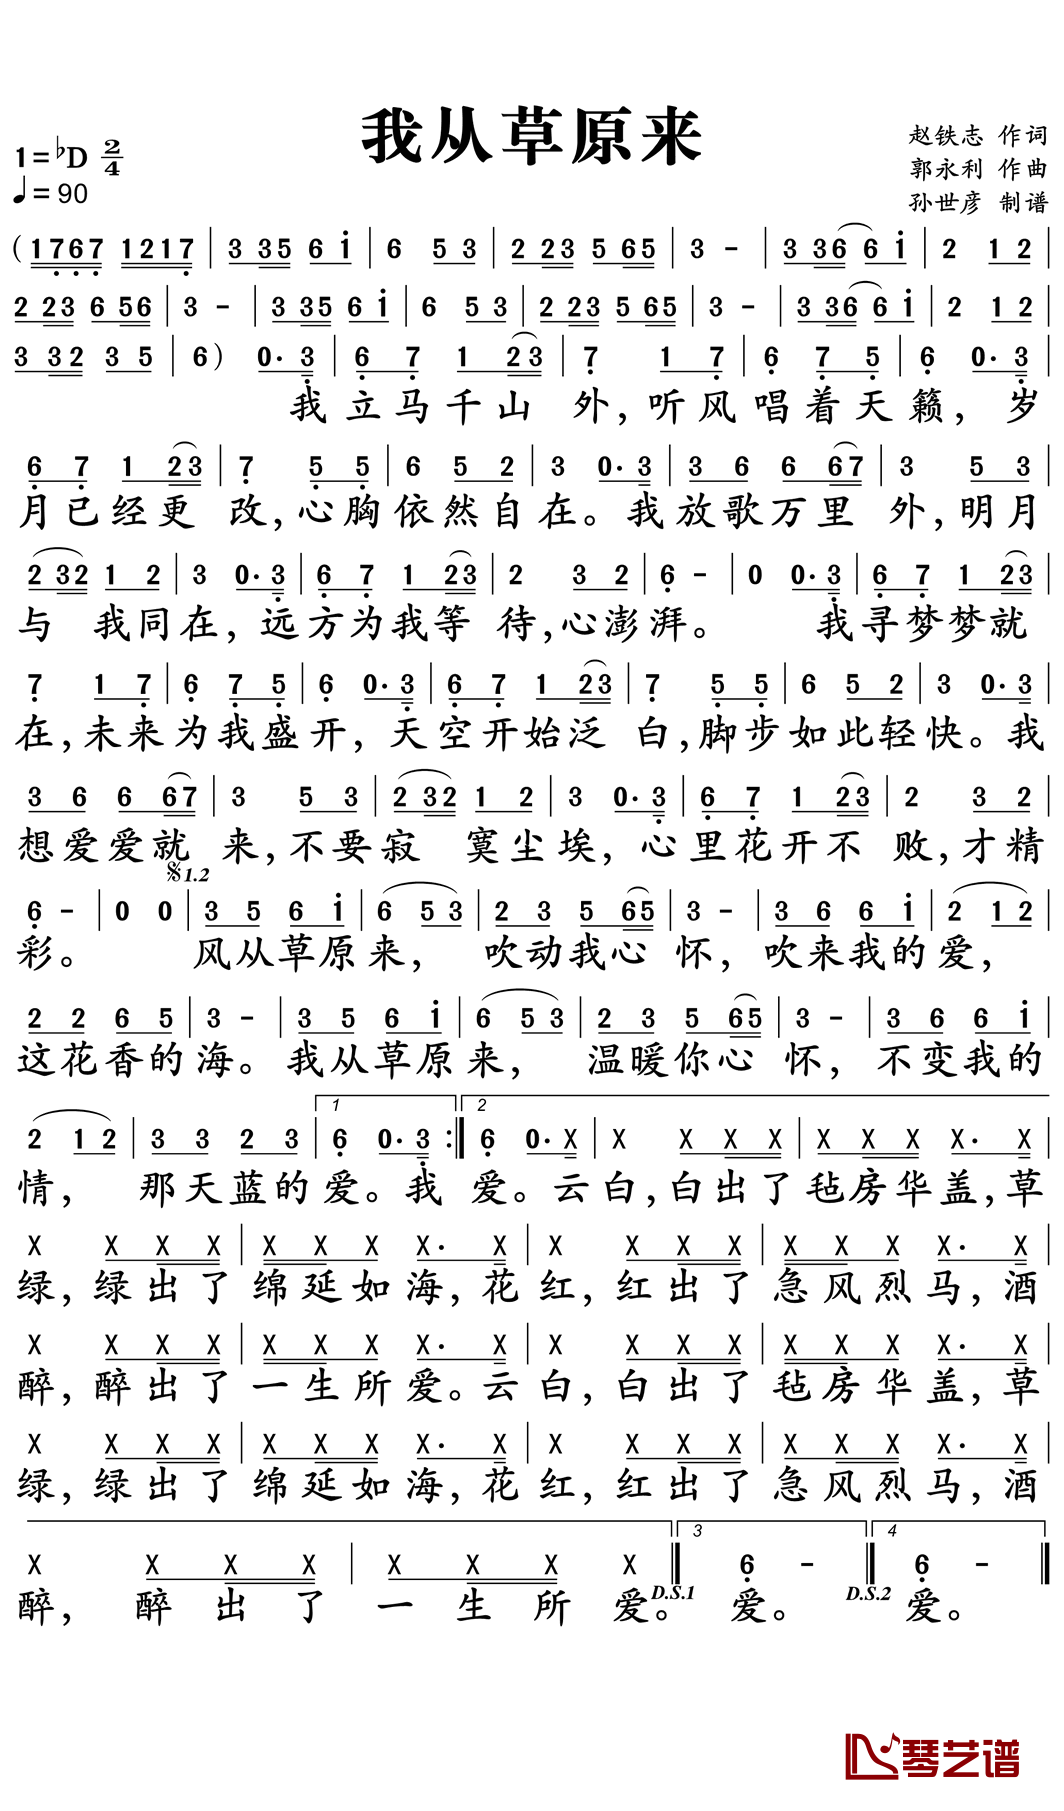 我从草原来
1=♭D 2/4
♩=90
赵铁志 作词
郭永利 作曲
孙世彦 制谱
(1767 1217 | 3 35 6 i | 6 5 3 | 2 23 5 65 | 3 - | 3 36 6 i | 2 1 2 |
2 23 6 56 | 3 - | 3 35 6 i | 6 5 3 | 2 23 5 65 | 3 - | 3 36 6 i | 2 1 2 |
3 32 3 5 | 6 ) 0· 3 | 6 7 1 23 | 7 1 7 | 6 7 5 | 6 0· 3 |
我立马千山 外,听风唱着天籁, 岁
6 7 1 23 | 7 5 5 | 6 5 2 | 3 0· 3 | 3 6 6 67 | 3 5 3 |
月已经更 改,心胸依然自在。我放歌万里 外,明月
2 32 1 2 | 3 0· 3 | 6 7 1 23 | 2 3 2 | 6 - | 0 0· 3 | 6 7 1 23 |
与 我同在, 远方为我等 待,心澎湃。 我寻梦梦就
7 1 7 | 6 7 5 | 6 0· 3 | 6 7 1 23 | 7 5 5 | 6 5 2 | 3 0· 3 |
在,未来为我盛开, 天空开始泛 白,脚步如此轻快。我
3 6 6 67 | 3 5 3 | 2 32 1 2 | 3 0· 3 | 6 7 1 23 | 2 3 2 |
想爱爱就 来,不要寂 寞尘埃, 心里花开不 败,才精
𝄋1.2
6 - | 0 0 | 3 5 6 i | 6 5 3 | 2 3 5 65 | 3 - | 3 6 6 i | 2 1 2 |
彩。 风从草原来, 吹动我心 怀, 吹来我的爱,
2 2 6 5 | 3 - | 3 5 6 i | 6 5 3 | 2 3 5 65 | 3 - | 3 6 6 i |
这花香的海。 我从草原来, 温暖你心 怀, 不变我的
1 2
2 1 2 | 3 3 2 3 | 6 0· 3 :| 6 0· X | X X X X | X X X X· X |
情, 那天蓝的爱。我 爱。云白,白出了毡房华盖,草
X X X X | X X X X· X | X X X X | X X X X· X |
绿,绿出了绵延如海,花红,红出了急风烈马,酒
X X X X | X X X X· X | X X X X | X X X X· X |
醉,醉出了一生所爱。云白,白出了毡房华盖,草
X X X X | X X X X· X | X X X X | X X X X· X |
绿,绿出了绵延如海,花红,红出了急风烈马,酒
3 4
X X X X | X X X X | 6 - | 6 - |
醉, 醉出了一生所爱。D.S.1 爱。 D.S.2 爱。
琴艺谱